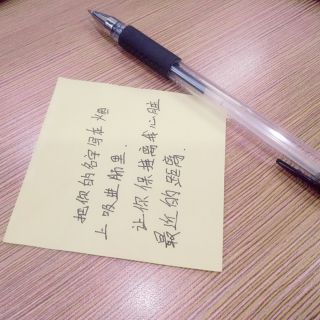 把你的名字写在烟
上吸进肺里.
让你保持离我心脏
最近的距离.